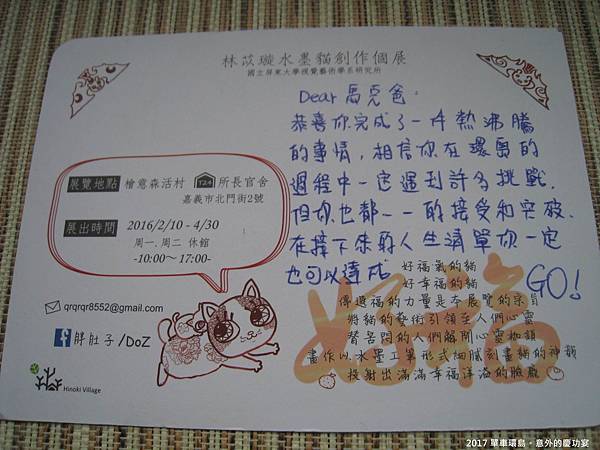 林苡璇水墨貓創作個展
國立屏東大學視覺藝術學系研究所
Dear 馬克爸：
恭喜你完成了一件熱沸騰
的事情，相信你在環島的
過程中一定遇到許多挑戰，
但你也都一一的接受和突破，
在接下來的人生清單你一定
也可以達成 GO!
展覽地點 檜意森活村 T24 所長官舍
嘉義市北門街2號
展出時間 2016/2/10 - 4/30
周一. 周二 休館
-10:00～ 17:00-
qrqrqr8552@gmail.com
胖肚子/DoZ
Hinoki Village
好福
好福氣的貓
好幸福的貓
傳遞福的力量是本展覽的宗旨
將貓的藝術引領至人們心靈
替苦悶的人們解開心靈枷鎖
畫作以水墨工筆形式細膩刻畫貓的神韻
投射出滿滿幸福洋溢的臉龐
2017 單車環島。意外的慶功宴